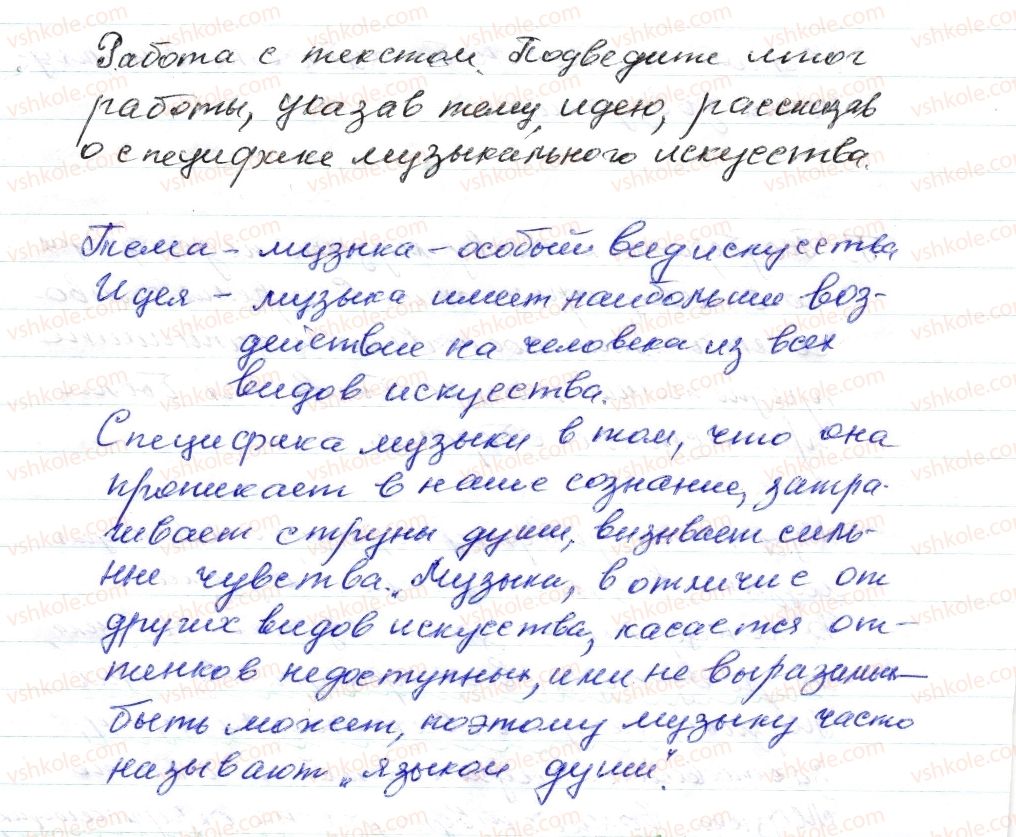 Работа с текстом. Подведите итог
работы, указав тему, идею, рассказав
о специфике музыкального искусства.
Тема – музыка – особый вид искусства
Идея – музыка имеет наибольшее воз-
действие на человека из всех
видов искусства.
Специфика музыки в том, что она
проникает в наше сознание, затра-
гивает струны души, визывает силь-
ные чувства. „Музыка, в отличие от
других видов искусства, касается от-
тенков недоступных, ими не выразимых –
быть может, поэтому музыку часто
называют „языком души".
vshkole.com